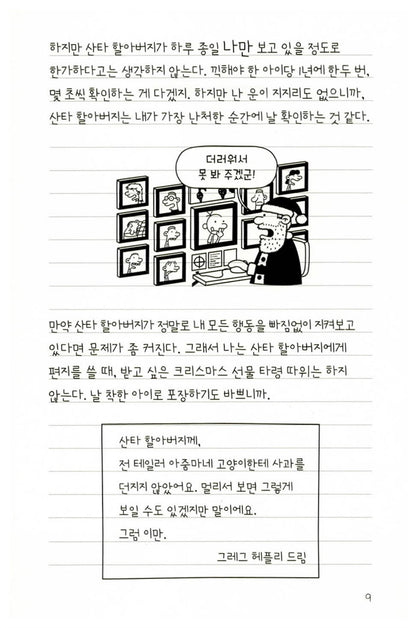 하지만 산타 할아버지가 하루 종일 나만 보고 있을 정도로
한가하다고는 생각하지 않는다. 끽해야 한 아이당 1년에 한두 번,
몇 초씩 확인하는 게 다겠지. 하지만 난 운이 지지리도 없으니까,
산타 할아버지는 내가 가장 난처한 순간에 날 확인하는 것 같다.
더러워서
못 봐 주겠군!
만약 산타 할아버지가 정말로 내 모든 행동을 빠짐없이 지켜보고
있다면 문제가 좀 커진다. 그래서 나는 산타 할아버지에게
편지를 쓸 때, 받고 싶은 크리스마스 선물 타령 따위는 하지
않는다. 날 착한 아이로 포장하기도 바쁘니까.
산타 할아버지께,
전 테일러 아줌마네 고양이한테 사과를
던지지 않았어요. 멀리서 보면 그렇게
보일 수도 있겠지만 말이에요.
그럼 이만.
그레그 헤플리 드림
9